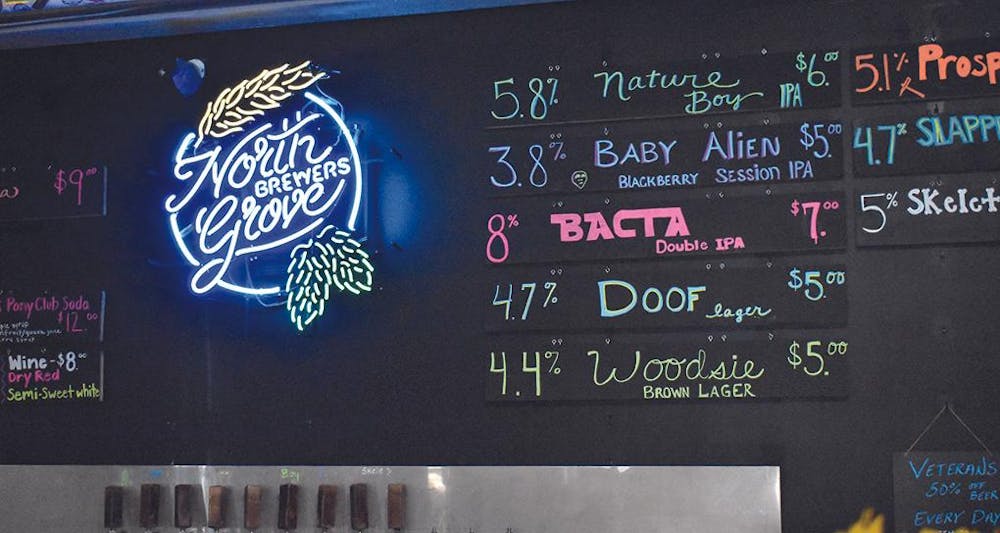 North
BREWERS
Grove
$9.00
Pony Club Soda
$12.00
Wine - $8.00
Dry Red
Semi-Sweet white
5.8% Nature $6.00
Boy IPA
3.8% BABY ALIEN $5.00
BLACKBERRY SESSION IPA
8% BACTA $7.00
Double IPA
4.7% DOOF lager $5.00
4.4% Woodsie $5.00
BROWN LAGER
5.1% Prosp
4.7% SLAPP
5% SKelet
Boy
Skele's
VETERANS
50% OFF
BEER
EVERY DAY